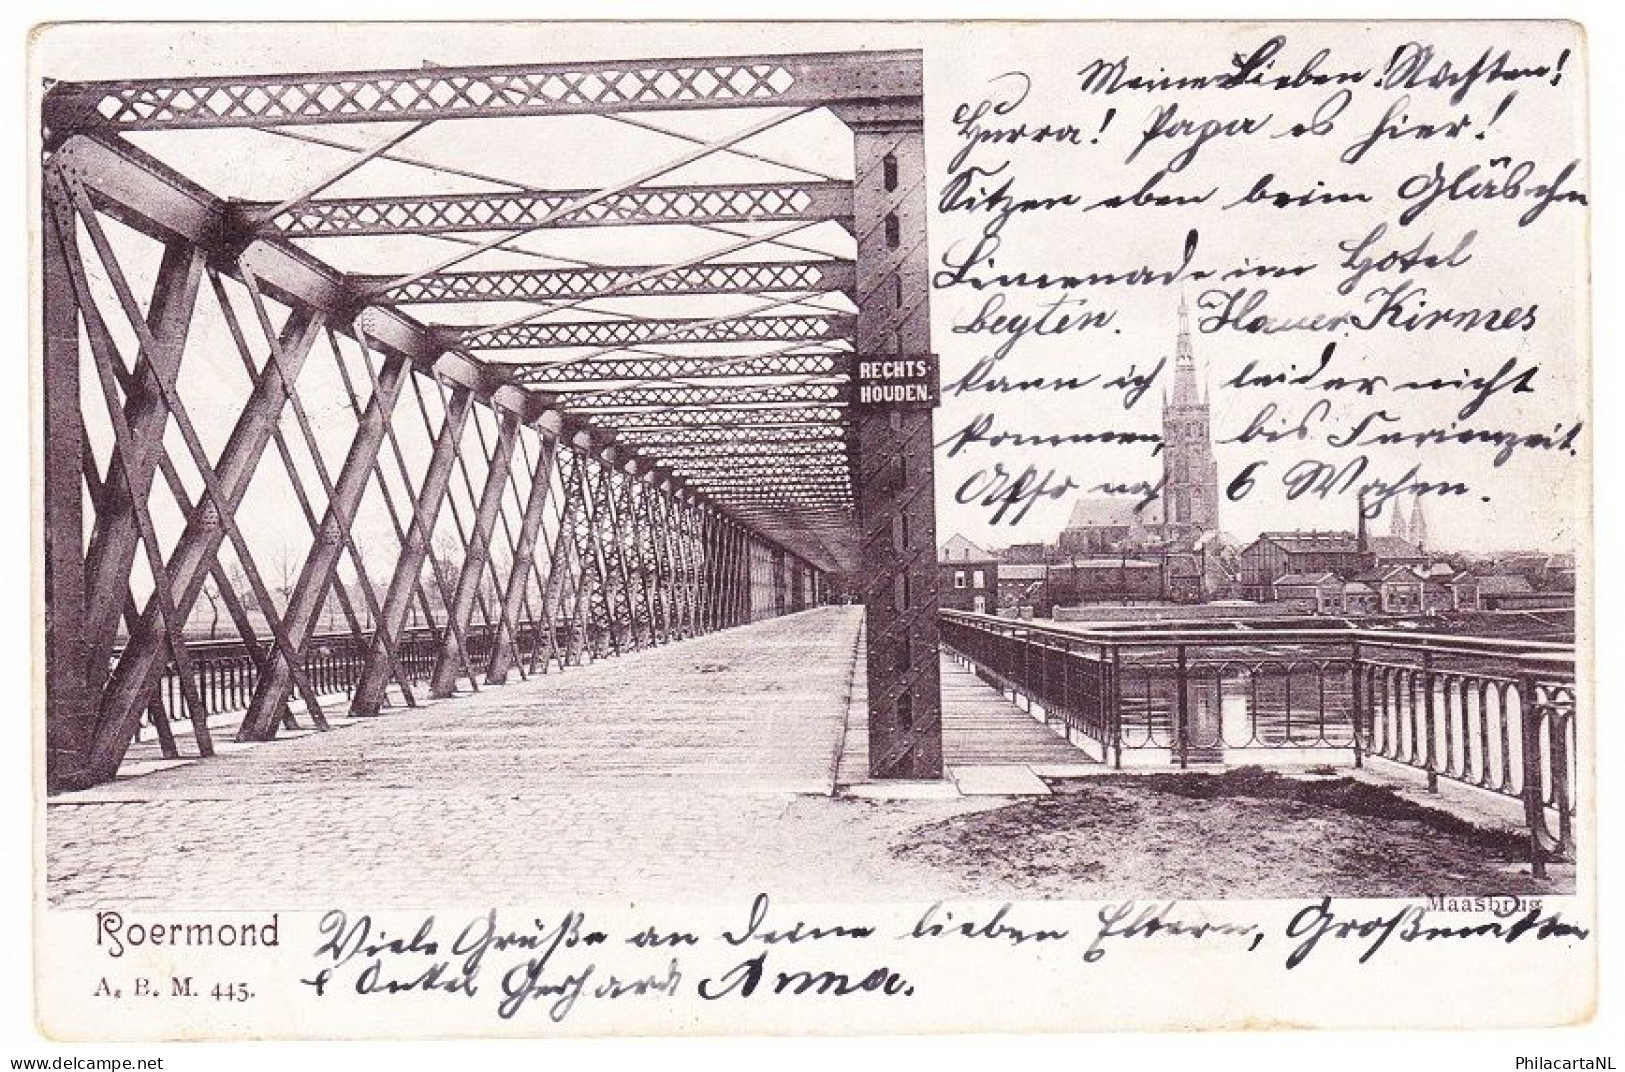 Meine Lieben!
Hurra! Papa es hier!
Sitzen eben beim Gläschen
Limenade im Hotel
Beyten. Hauer Kirmes
kann ich leider nicht
kommen, bis Ferienzeit.
Also noch 6 Wochen.
RECHTS-
HOUDEN.
Maasbrug
Roermond
A. B. M. 445.
Viele Grüße an Deine lieben Eltern, Großmutter
& Onkel Gerhard Anna.
www.delcampe.net
PhilacartaNL